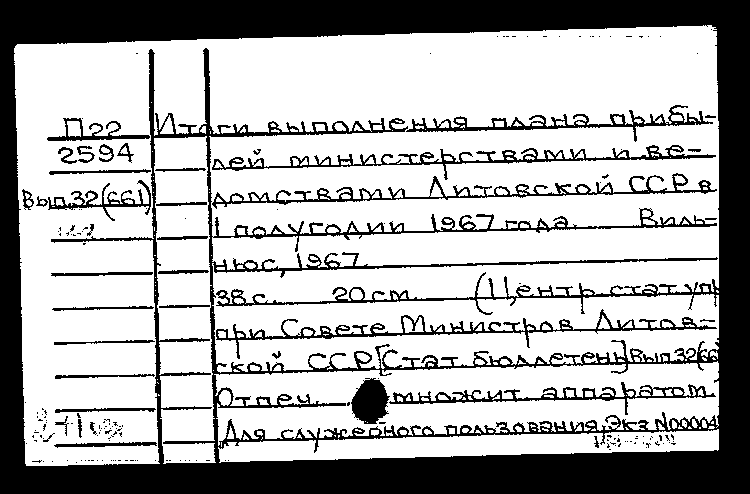 П22 Итоги выполнения плана прибы-
2594 лей министерствами и ве-
Вып.32(661) домствами Литовской ССР в
I полугодии 1967 года. Виль-
нюс, 1967.
38 с. 20 см. (Центр. стат. упр
при Совете Министров Литов-
ской ССР [Стат. бюллетень] Вып.32(66
Отпеч. множит. аппаратом.
Для служебного пользования, Экз N00004